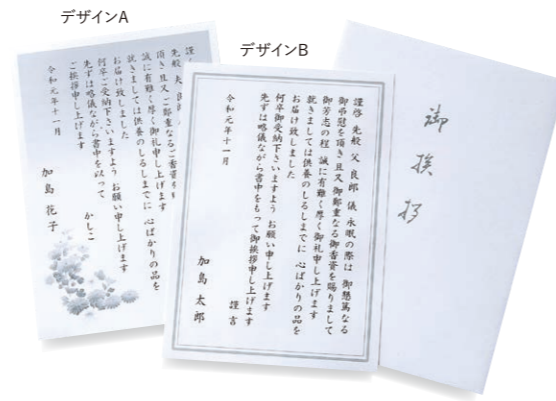 デザインA
謹
先般 夫
頂き且又 ご鄭重なるご香資
誠に有難く厚く御礼申し上げます
就きましては供養のしるしまでに 心ばかりの品を
お届け致しました
何卒ご受納下さいますよう お願い申し上げます
先ずは略儀ながら書中を以って
ご挨拶申し上げます
かしこ
令和元年十一月
加島 花子
デザインB
謹啓 先般 父 良郎 儀 永眠の際は 御懇篤なる
御弔慰を頂き且又 御鄭重なる御香資を賜りまして
御芳志の程 誠に有難く厚く御礼申し上げます
就きましては供養のしるしまでに 心ばかりの品を
お届け致しました
何卒御受納下さいますよう お願い申し上げます
先ずは略儀ながら書中をもって御挨拶申し上げます
謹言
令和元年十一月
加島 太郎
御挨拶